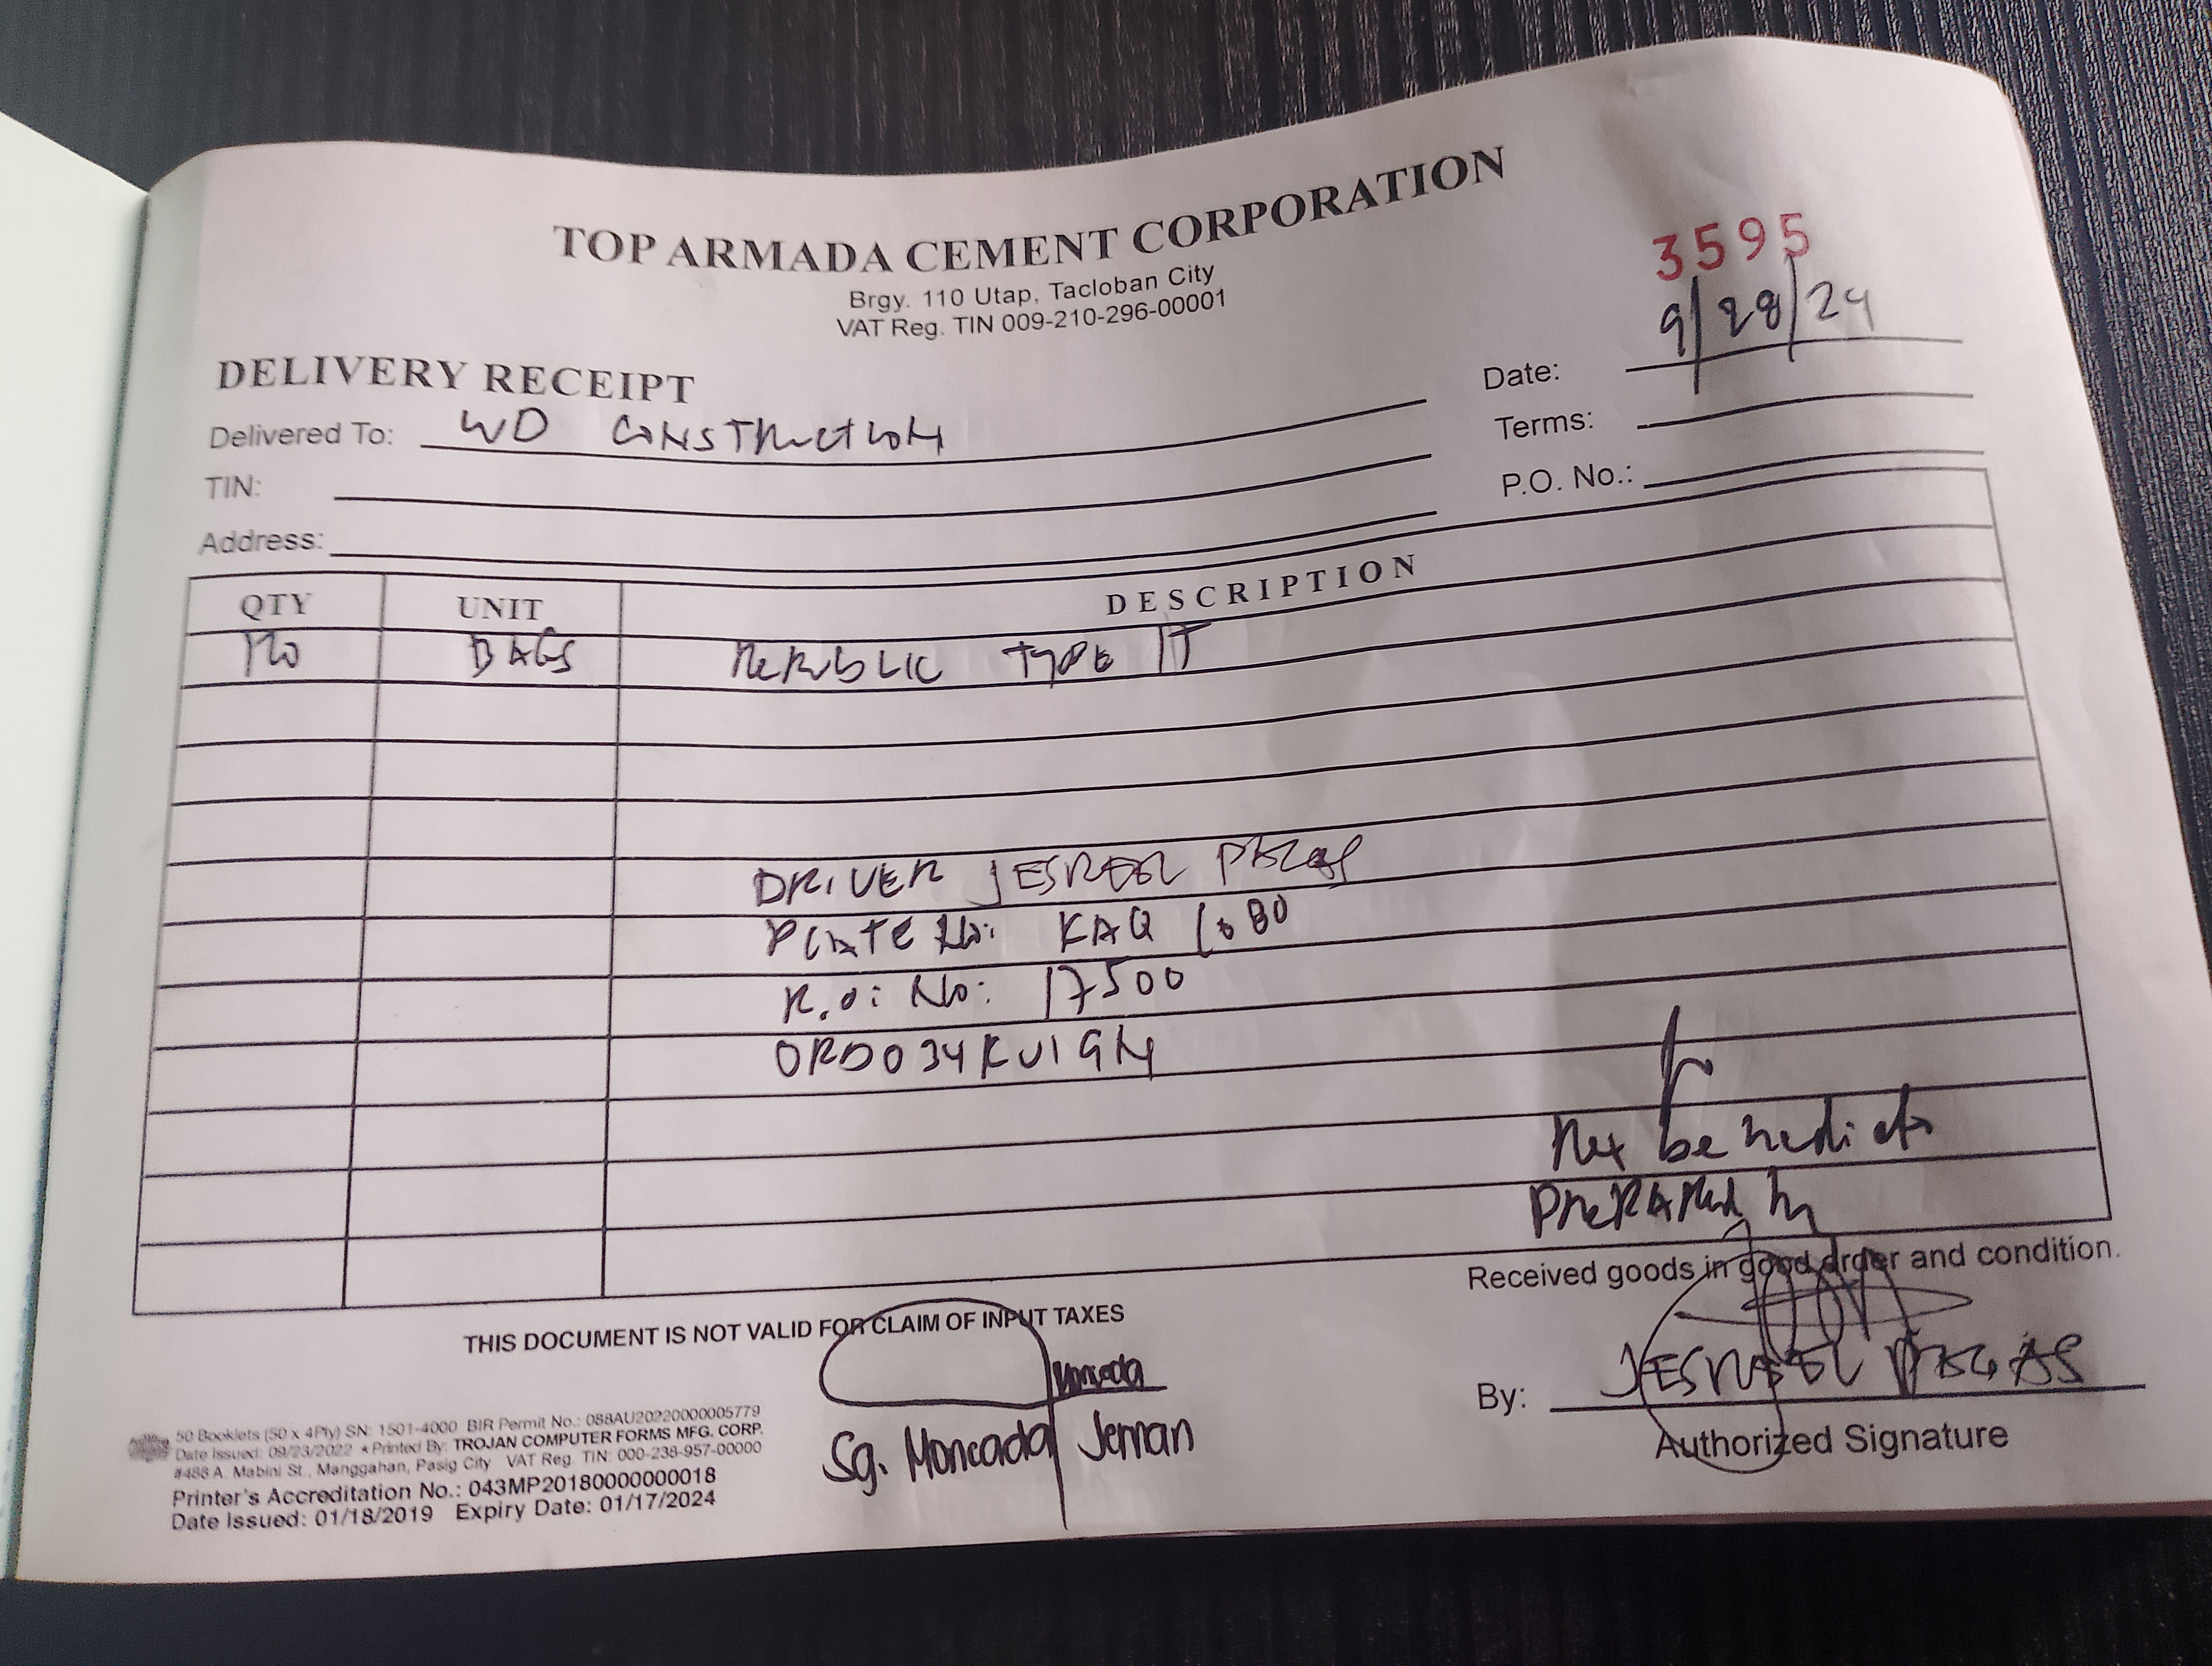 TOP ARMADA CEMENT CORPORATION
Brgy. 110 Utap, Tacloban City
VAT Reg. TIN 009-210-296-00001
3595
DELIVERY RECEIPT
Date: 9/28/24
Delivered To: WD CONSTRUCTION
Terms:
TIN:
P.O. No.:
Address:
QTY UNIT DESCRIPTION
BAGS REPUBLIC TYPE 1T
DRIVER JESREEL
PLATE No: KAQ
R.O: No: 17500
ORD034KU19N
Rex benedicto
PREPARED by
Received goods in good order and condition.
THIS DOCUMENT IS NOT VALID FOR CLAIM OF INPUT TAXES
By: JESREEL
Sg. Moncada Jernan
Authorized Signature
50 Booklets (50 x 4Ply) SN: 1501-4000 BIR Permit No.: 088AU20220000005779
Date Issued: 09/23/2022 * Printed By: TROJAN COMPUTER FORMS MFG. CORP.
#488 A. Mabini St., Manggahan, Pasig City VAT Reg. TIN: 000-238-957-00000
Printer's Accreditation No.: 043MP20180000000018
Date Issued: 01/18/2019 Expiry Date: 01/17/2024